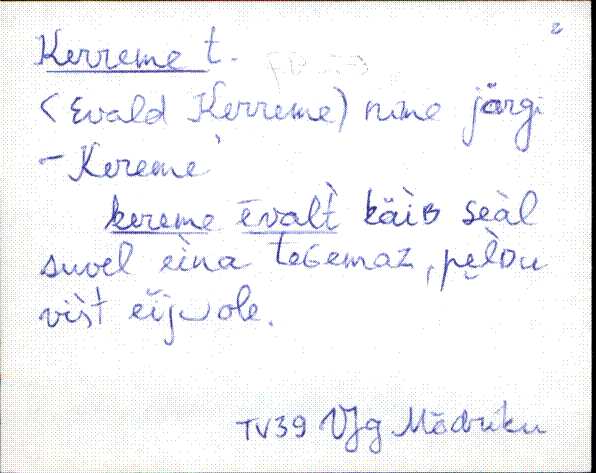 2
Kerreme t.
(Evald Kerreme) nime järgi
– Kereme
kereme ēvalt̀ käiʙ seàl
suvel eìna teɢemaz, pèlDu
vis̀t eìj‿ole.
TV39 VJg Mädriku